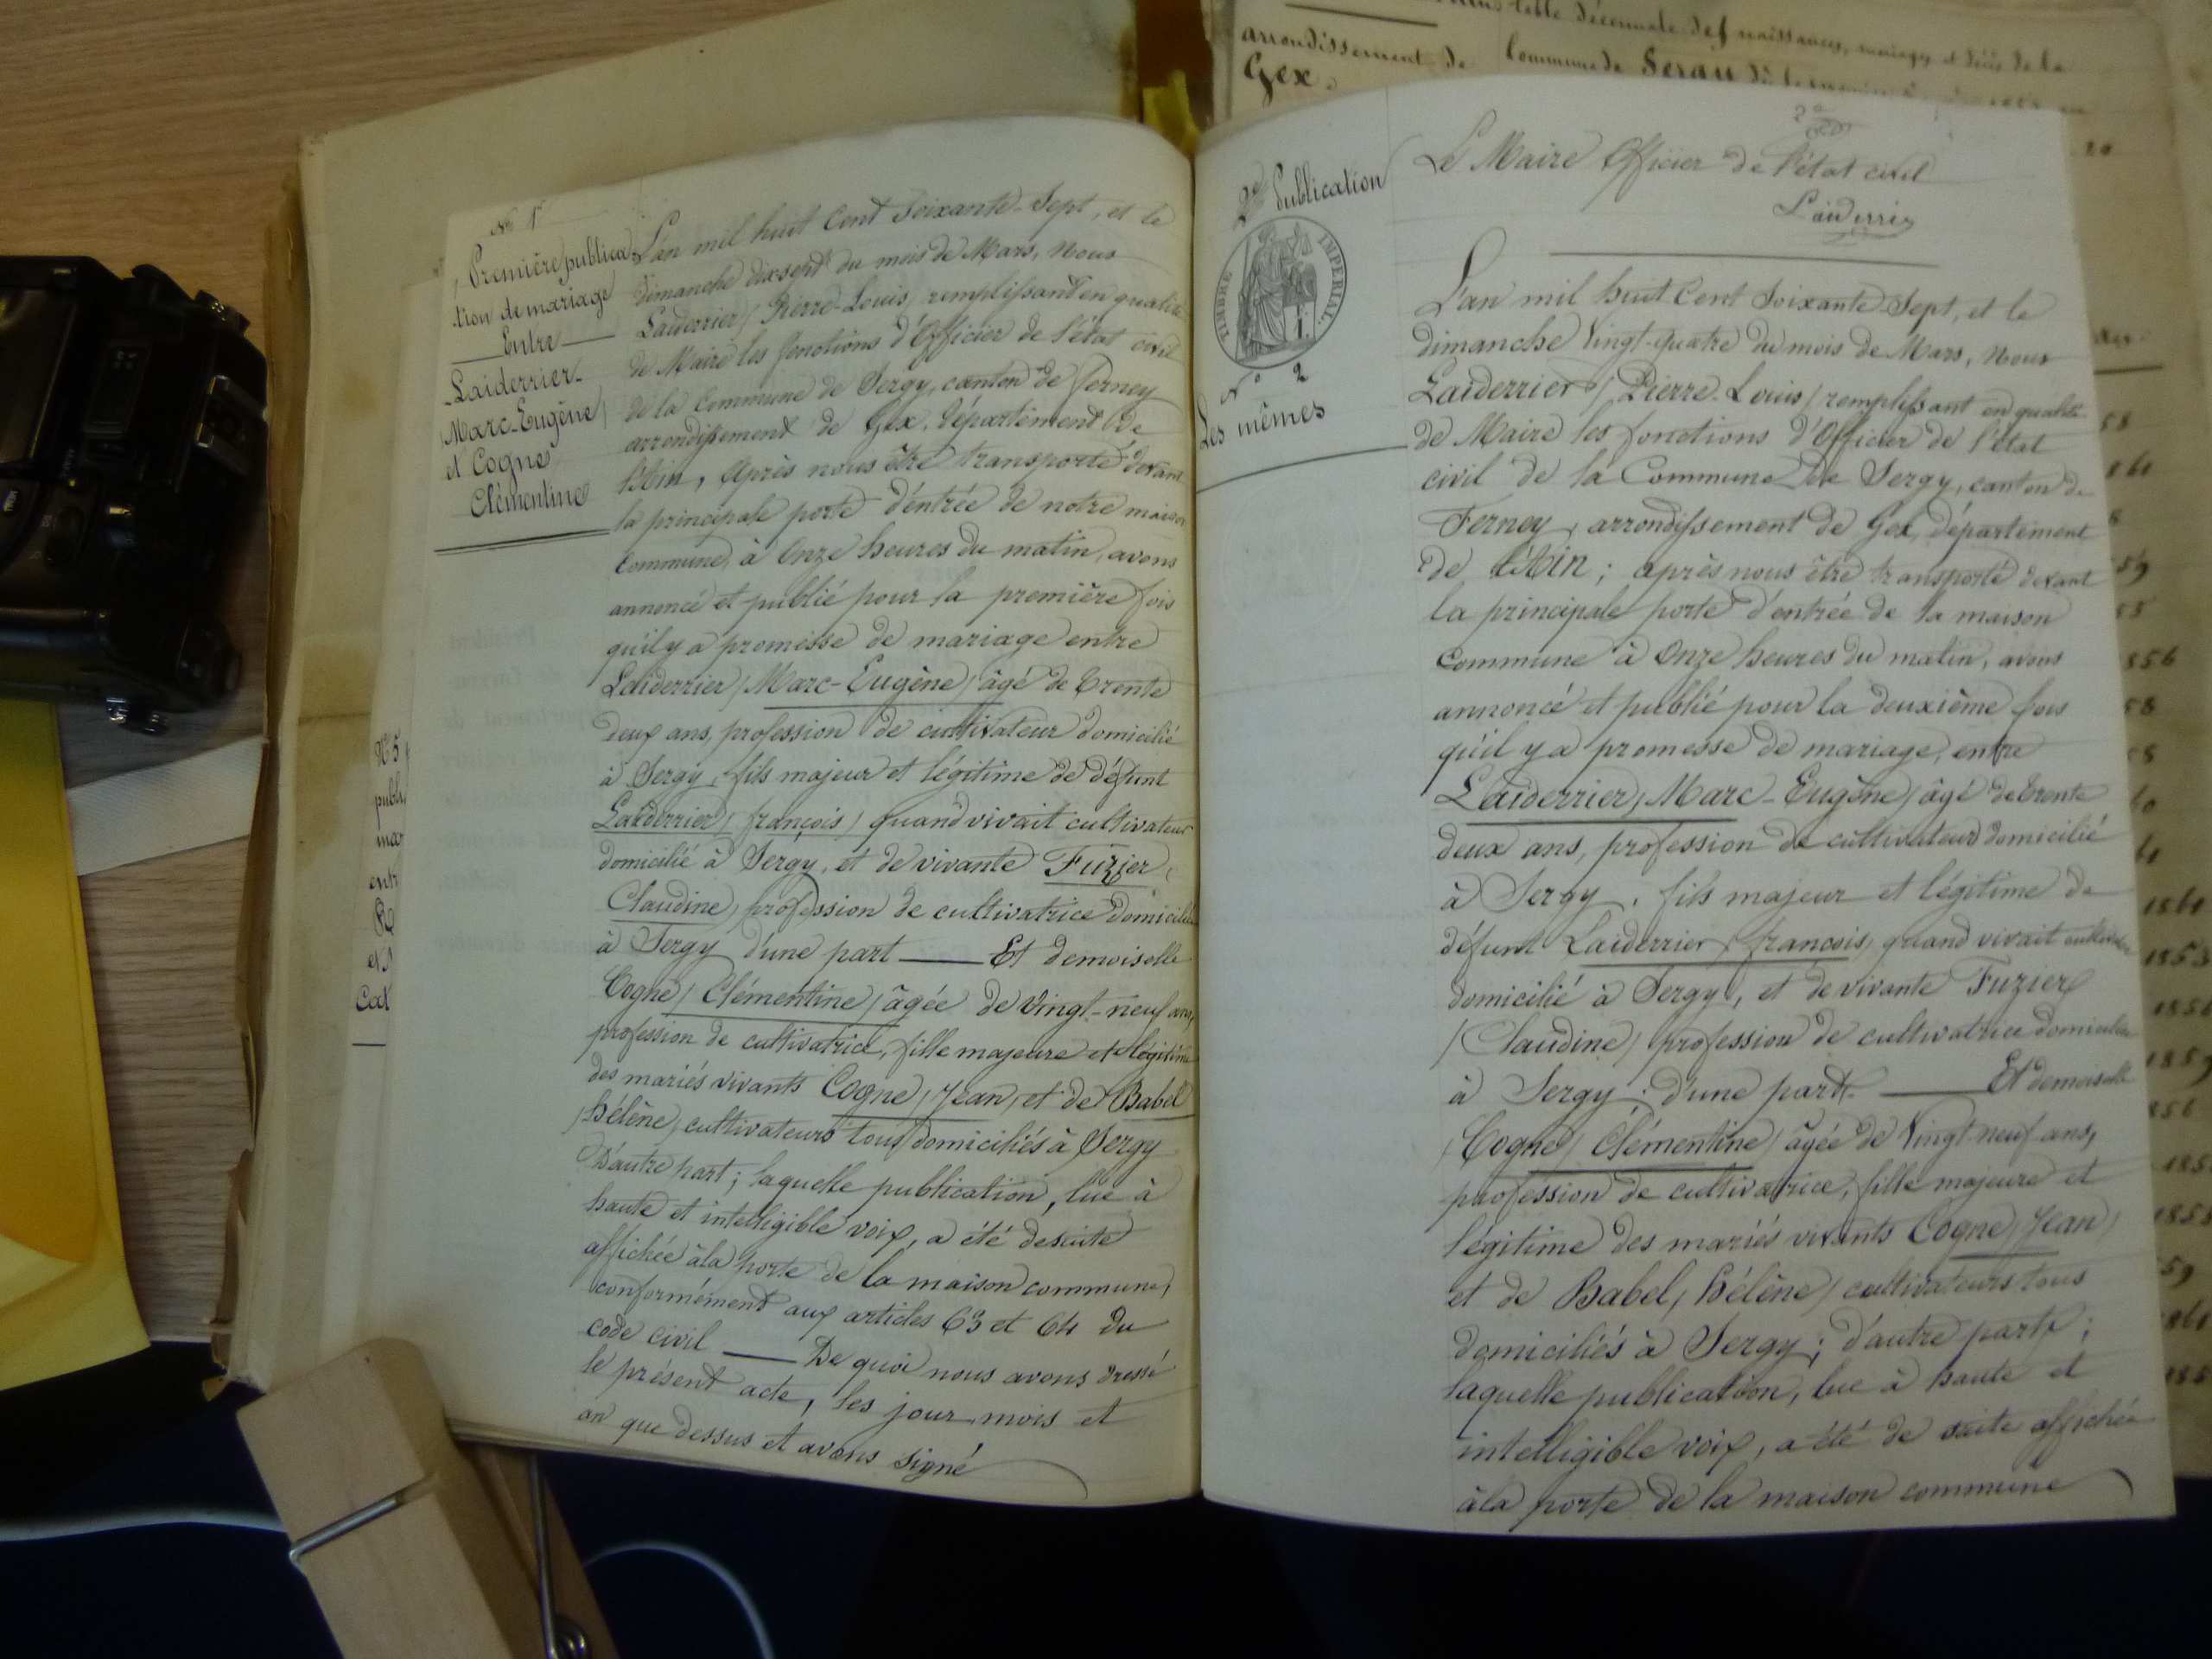 N° 1
Première publica-
tion de mariage
Entre
Laiderrier
Marc-Eugène
et Cogne
Clémentine
L'an mil huit Cent Soixante-Sept, et le
dimanche dix sept du mois de Mars, Nous
Laiderrier (Pierre-Louis) remplissant en qualité
de Maire les fonctions d'Officier de l'état civil
de la Commune de Sergy, canton de Ferney
arrondissement de Gex, département de
l'Ain, Après nous être transporté devant
la principale porte d'entrée de notre maison
Commune, à Onze heures du matin, avons
annoncé et publié pour la première fois
qu'il y a promesse de mariage entre
Laiderrier (Marc-Eugène) âgé de trente
deux ans, profession de cultivateur domicilié
à Sergy, fils majeur et légitime de défunt
Laiderrier (françois) quand vivait cultivateur
domicilié à Sergy, et de vivante Fuzier
Claudine) profession de cultivatrice domiciliée
à Sergy d'une part — Et demoiselle
Cogne (Clémentine) âgée de Vingt-neuf ans,
profession de cultivatrice, fille majeure et légitime
des mariés vivants Cogne (Jean) et de Babel
(hélène) cultivateurs tous domiciliés à Sergy
D'autre part; laquelle publication, lue à
haute et intelligible voix, a été desuite
affichée à la porte de la maison commune,
conformément aux articles 63 et 64 du
code civil — De quoi nous avons dressé
le présent acte, les jour, mois et
an que dessus et avons signé
N° 5
publi
mar
entr
Cat
2e Publication
TIMBRE IMPERIAL
N° 2
Les mêmes
Le Maire Officier de l'état civil
Laiderrier
L'an mil huit Cent Soixante Sept, et le
dimanche Vingt-quatre du mois de Mars, Nous
Laiderrier (Pierre-Louis) remplissant en qualité
de Maire les fonctions d'Officier de l'état
civil de la Commune de Sergy, canton de
Ferney, arrondissement de Gex, département
de l'Ain; après nous être transporté devant
la principale porte d'entrée de la maison
Commune à Onze heures du matin, avons
annoncé et publié pour la deuxième fois
qu'il y a promesse de mariage, entre
Laiderrier (Marc-Eugène) âgé de trente
deux ans, profession de cultivateur domicilié
à Sergy, fils majeur et légitime de
défunt Laiderrier (francois) quand vivait cultivateur
domicilié à Sergy, et de vivante Fuzier
(Claudine) profession de cultivatrice domiciliée
à Sergy; d'une part — Et demoiselle
(Cogne) Clémentine) âgée de Vingt-neuf ans,
profession de cultivatrice, fille majeure et
légitime des mariés vivants Cogne (Jean)
et de Babel (hélène) cultivateurs tous
domiciliés à Sergy; d'autre part;
laquelle publication, lue à haute et
intelligible voix, a été de suite affichée
à la porte de la maison commune
table décennale des naissances, mariages et décès de la
arrondissement de
Commune de Sergy
Gex.
20
58
861
59
55
856
58
58
60
61
1861
1853
1859
856
185
1858
59
861
185